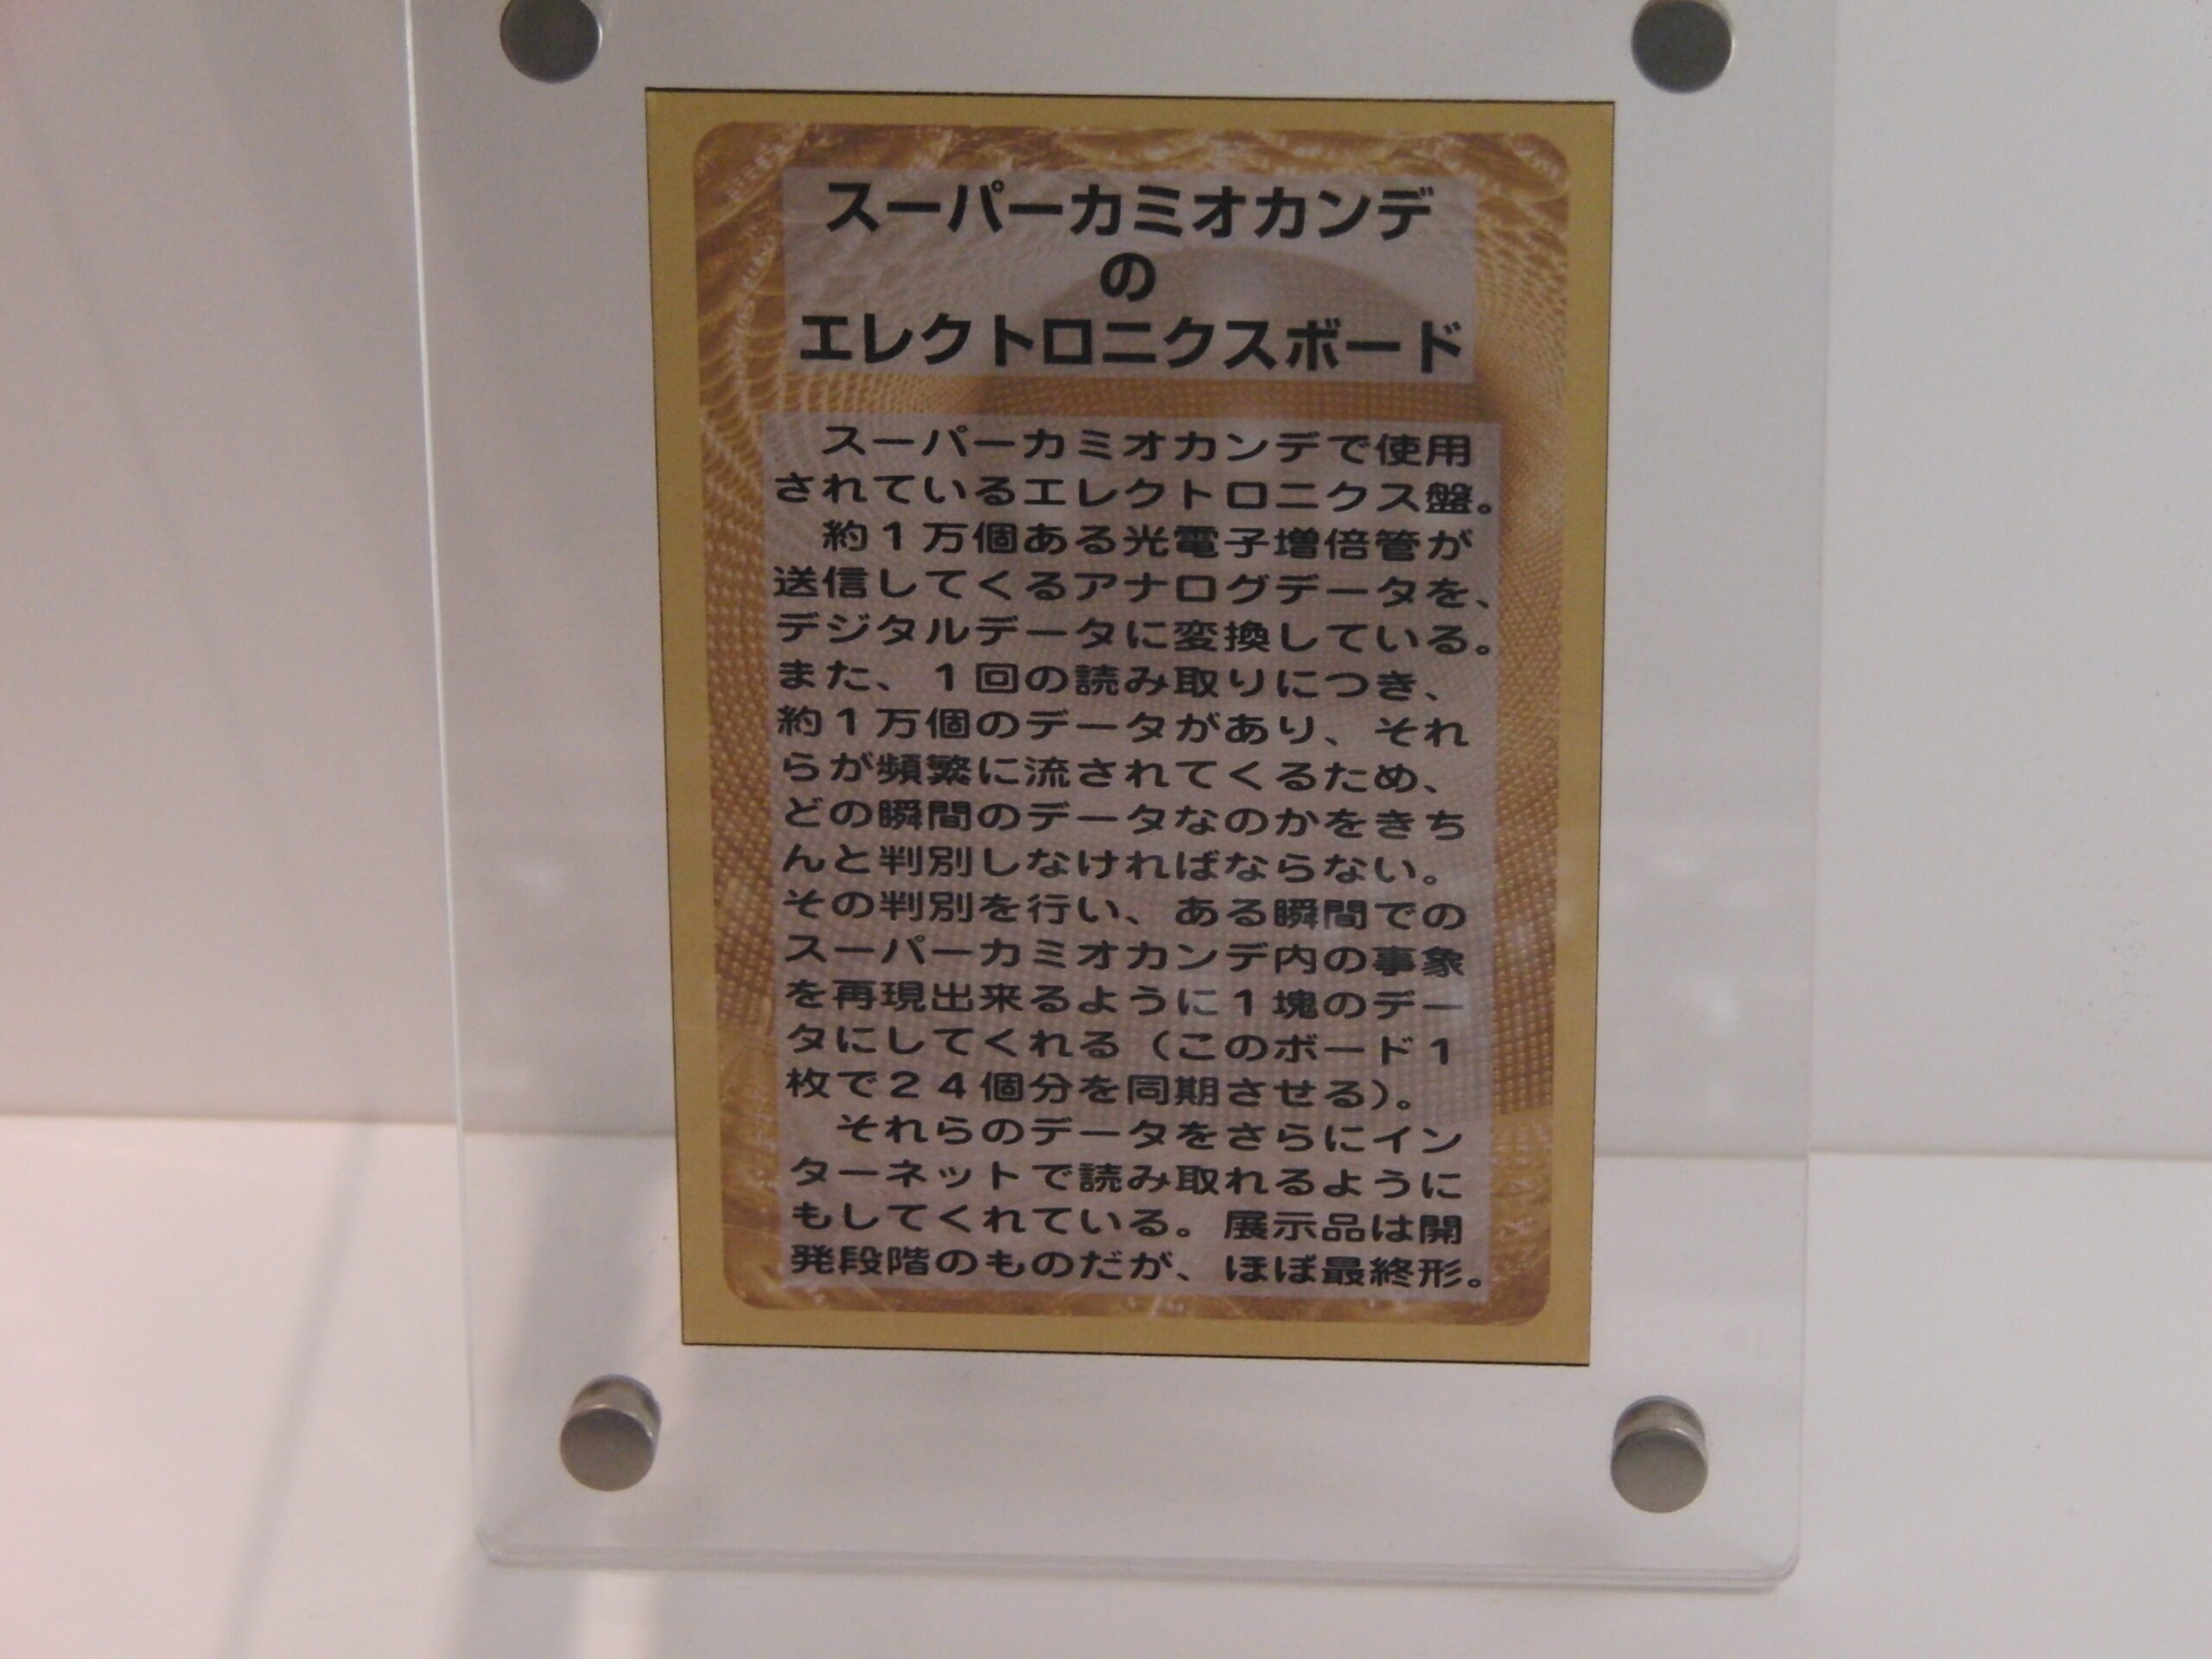 スーパーカミオカンデ
の
エレクトロニクスボード
スーパーカミオカンデで使用
されているエレクトロニクス盤。
約１万個ある光電子増倍管が
送信してくるアナログデータを、
デジタルデータに変換している。
また、１回の読み取りにつき、
約１万個のデータがあり、それ
らが頻繁に流されてくるため、
どの瞬間のデータなのかをきち
んと判別しなければならない。
その判別を行い、ある瞬間での
スーパーカミオカンデ内の事象
を再現出来るように１塊のデー
タにしてくれる（このボード１
枚で２４個分を同期させる）。
それらのデータをさらにイン
ターネットで読み取れるように
もしてくれている。展示品は開
発段階のものだが、ほぼ最終形。